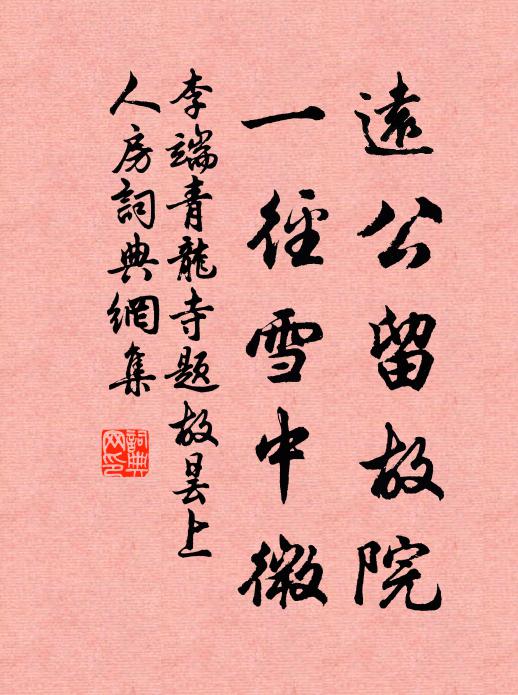 遠公留故院
一徑雪中微
李端青龍寺題故曇上
人房詞典網集
詞典
网印